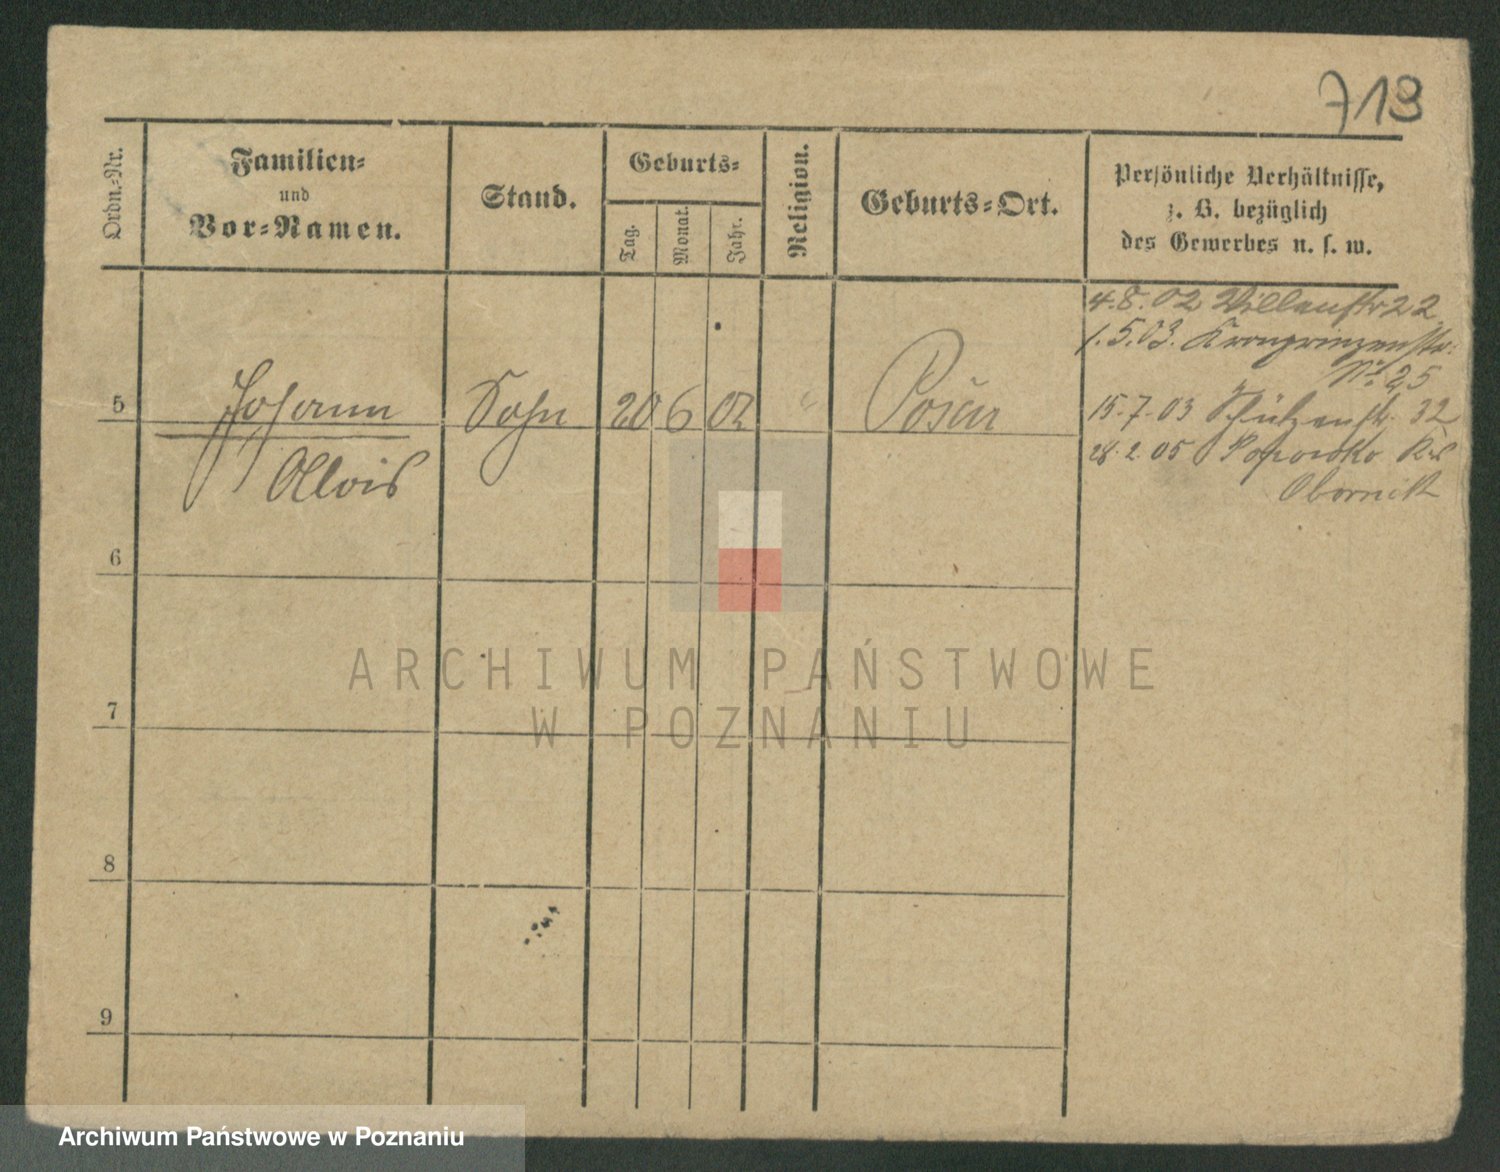 713
Ordn.-Nr.
Familien-
und
Vor-Namen.
Stand.
Geburts-
Tag.
Monat.
Jahr.
Religion.
Geburts-Ort.
Persönliche Verhältnisse,
z. B. bezüglich
des Gewerbes u. s. w.
4.8.02 Villenstr 22
1.5.03. Kronprinzenstr.
Nr. 25
5 Johann Sohn 20 6 02 " Posen
15.7.03 Schützenstr. 32
Alois
28.2.05 Popowko Krs
Obornik
6
7
8
9
ARCHIWUM PAŃSTWOWE
W POZNANIU
Archiwum Państwowe w Poznaniu